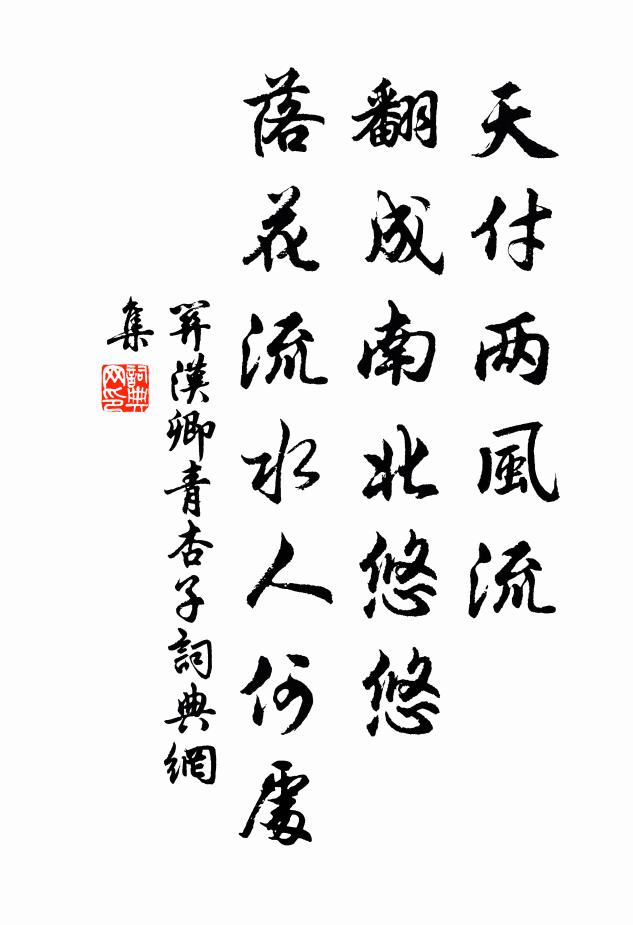 天付两風流
翻成南北悠悠
落花流水人何處
關漢卿青杏子詞典網
集
詞典
网印